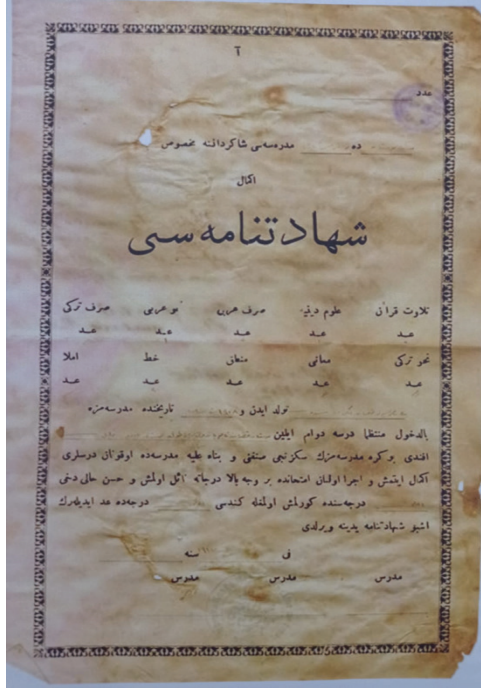 ٢
عدد
ده مدرسه‌سی شاكرداننه مخصوص
اكمال
شهادتنامه‌سی
تلاوت قرآن علوم دينيه صرف عربی نحو عربی صرف تركی
عدد عدد عدد عدد عدد
نحو تركی معانی منطق خط املا
عدد عدد عدد عدد عدد
تولد ايدن و تاريخنده مدرسه‌مزه
بالدخول منتظماً درسه دوام ايلين
افندی بو كره مدرسه‌مزك سكزنجی صنفنی و بناءً عليه مدرسه‌ده اوقونان درسلری
اكمال ايتمش و اجرا اولنان امتحانده بر وجه بالا درجاته نائل اولمش و حسن حالی دخی
درجه‌سنده كورلمش اولمغله كندسی درجه‌ده عد ايديله‌رك
اشبو شهادتنامه يدينه ويرلدی
فی سنه
مدرس مدرس مدرس